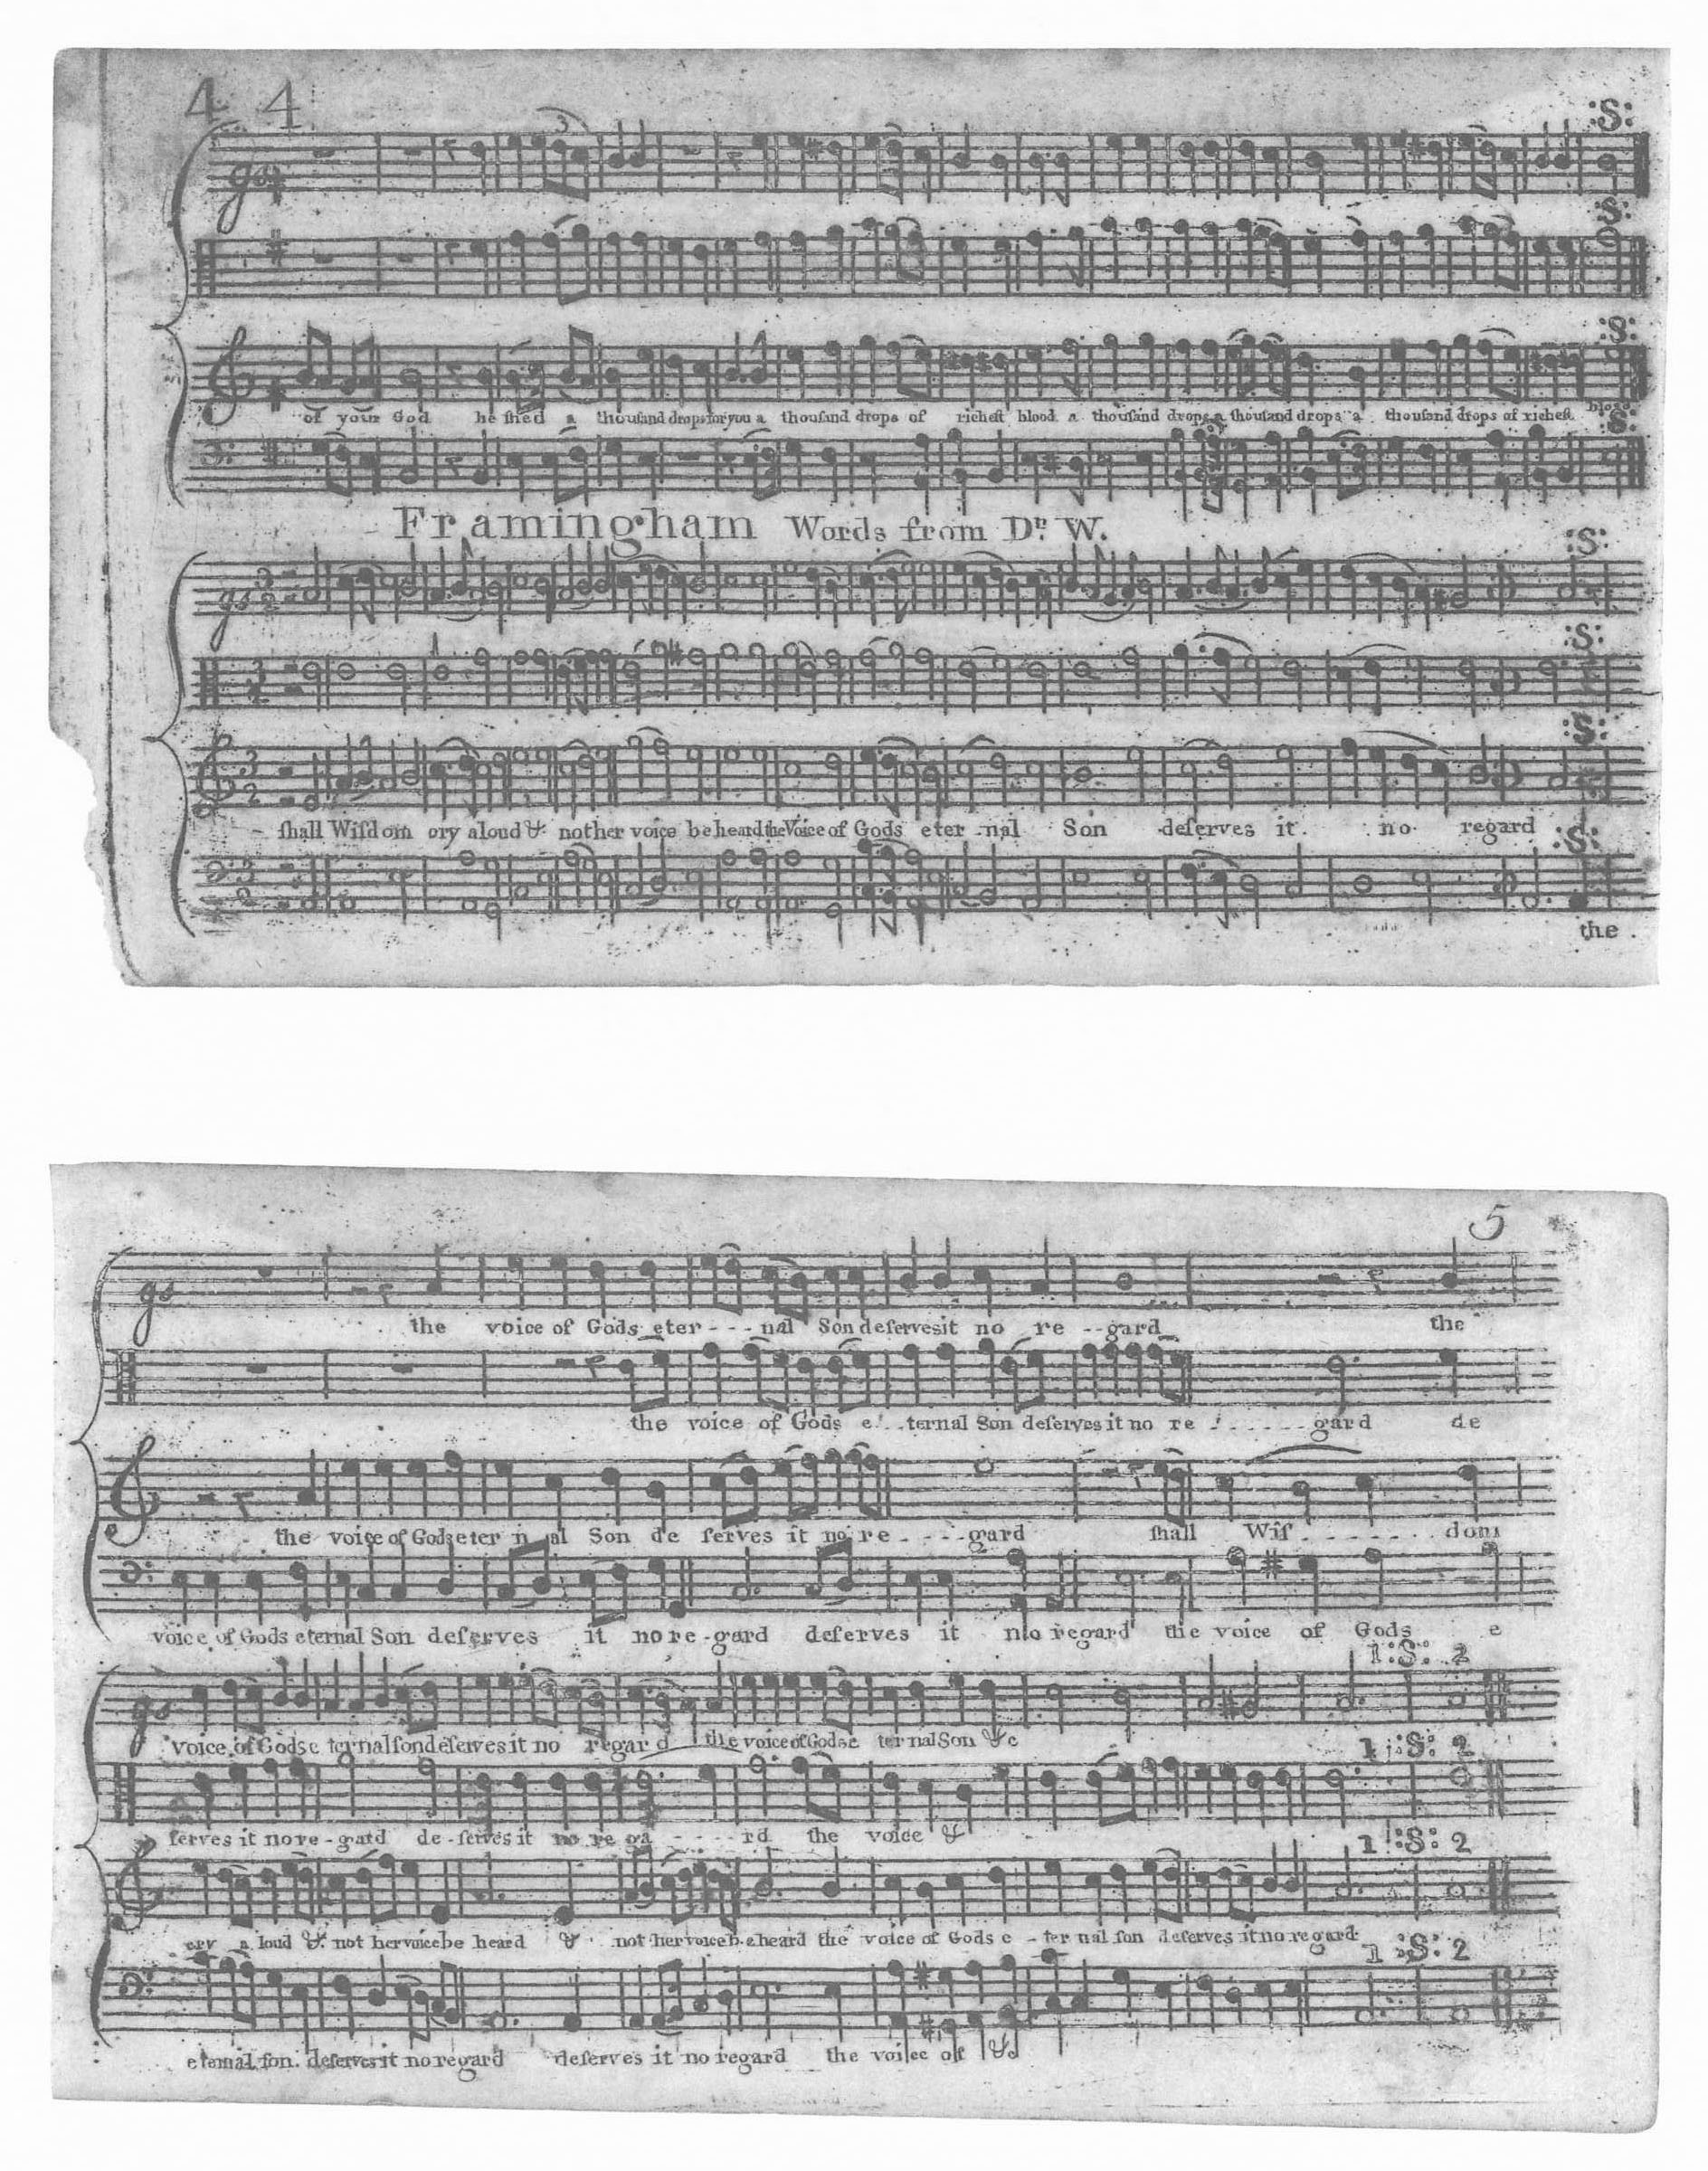 4 4
:S:
:S:
3
:S:
of your God he ſhed a thouſand drops for you a thouſand drops of richeſt blood a thouſand drops a thouſand drops a thouſand drops of richeſt blood
:S:
Framingham Words from Dr. W.
:S:
3 2
:S:
3 2
:S:
3 2
ſhall Wiſdom cry aloud & not her voice be heard the Voice of Gods eter - nal Son deſerves it no regard
:S:
3 2
the
5
gs
the voice of Gods eter - - - nal Son deſerves it no re - - gard the
the voice of Gods e - - ternal Son deſerves it no re - - - - - - gard de
the voice of Gods eter n al Son de ſerves it no re - - - - gard ſhall Wiſ - - - - - - - dom
voice of Gods eternal Son deſerves it no re - gard deſerves it no regard the voice of Gods e
1 :S: 2
gs
voice of Gods e ternal ſon deſerves it no regar d the voice of Gods e ternal Son &c
1 :S: 2
ſerves it no re - gard de - ſerves it no re ga - - - - rd the voice &
1 :S: 2
cry a loud & not her voice be heard & not her voice be heard the voice of Gods e - ter nal ſon deſerves it no regard
1 :S: 2
eternal ſon deſerves it no regard deſerves it no regard the voice of &c